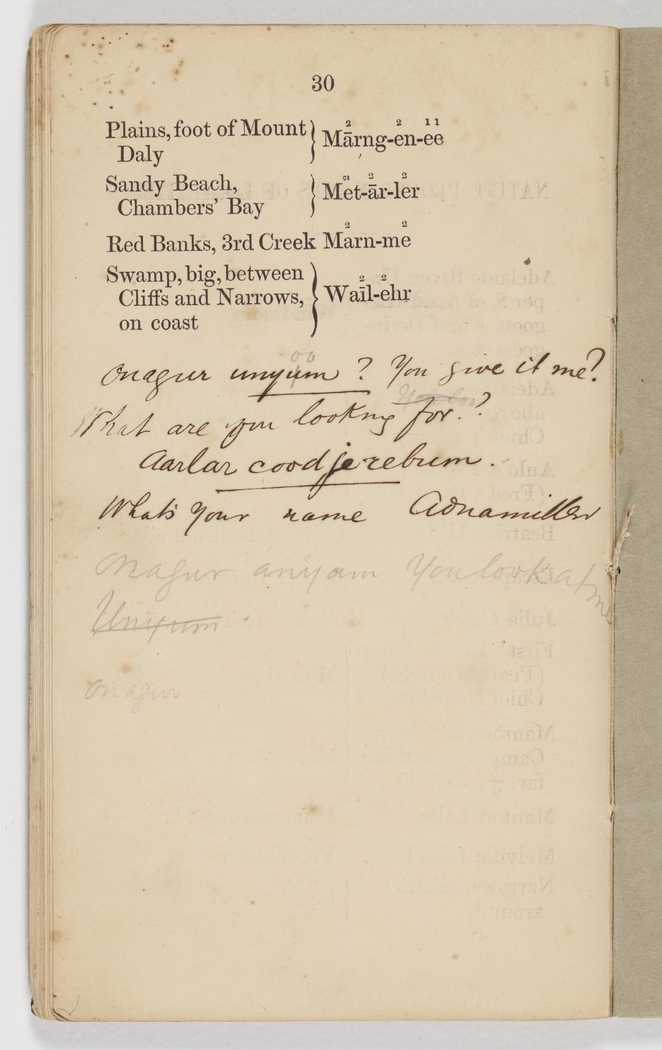 30
Plains, foot of Mount Daly } Mārng-en-ee
Sandy Beach, Chambers' Bay } Met-ār-ler
Red Banks, 3rd Creek Marn-me
Swamp, big, between Cliffs and Narrows, on coast } Waīl-ehr
onagur unyum ? You give it me?
oo
What are you looking for?
Aarlar coodjerebum.
What's Your name Adnamiller
Onagur anyam You look at me
Unyum
onagur